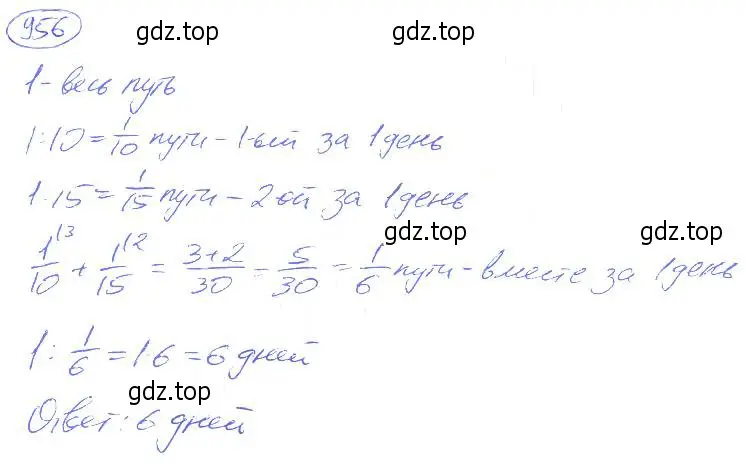 956 gdz.top gdz.top
1 - весь путь
1:10 = 1/10 пути - 1-ый за 1 день
1:15 = 1/15 пути - 2-ой за 1 день
gdz.top gdz.top
1/10 ⁽³ + 1/15 ⁽² = (3+2)/30 = 5/30 = 1/6 пути - вместе за 1 день
1 : 1/6 = 1·6 = 6 дней
gdz.top
Ответ: 6 дней